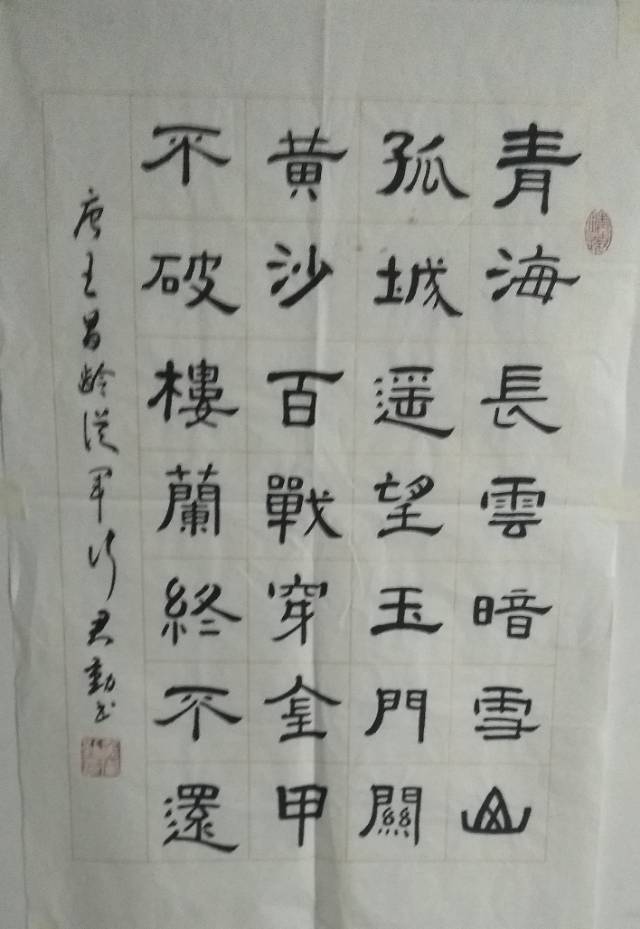 青海長雲暗雪山
孤城遥望玉門關
黄沙百戰穿金甲
不破樓蘭終不還
唐王昌齡從軍行君勤书